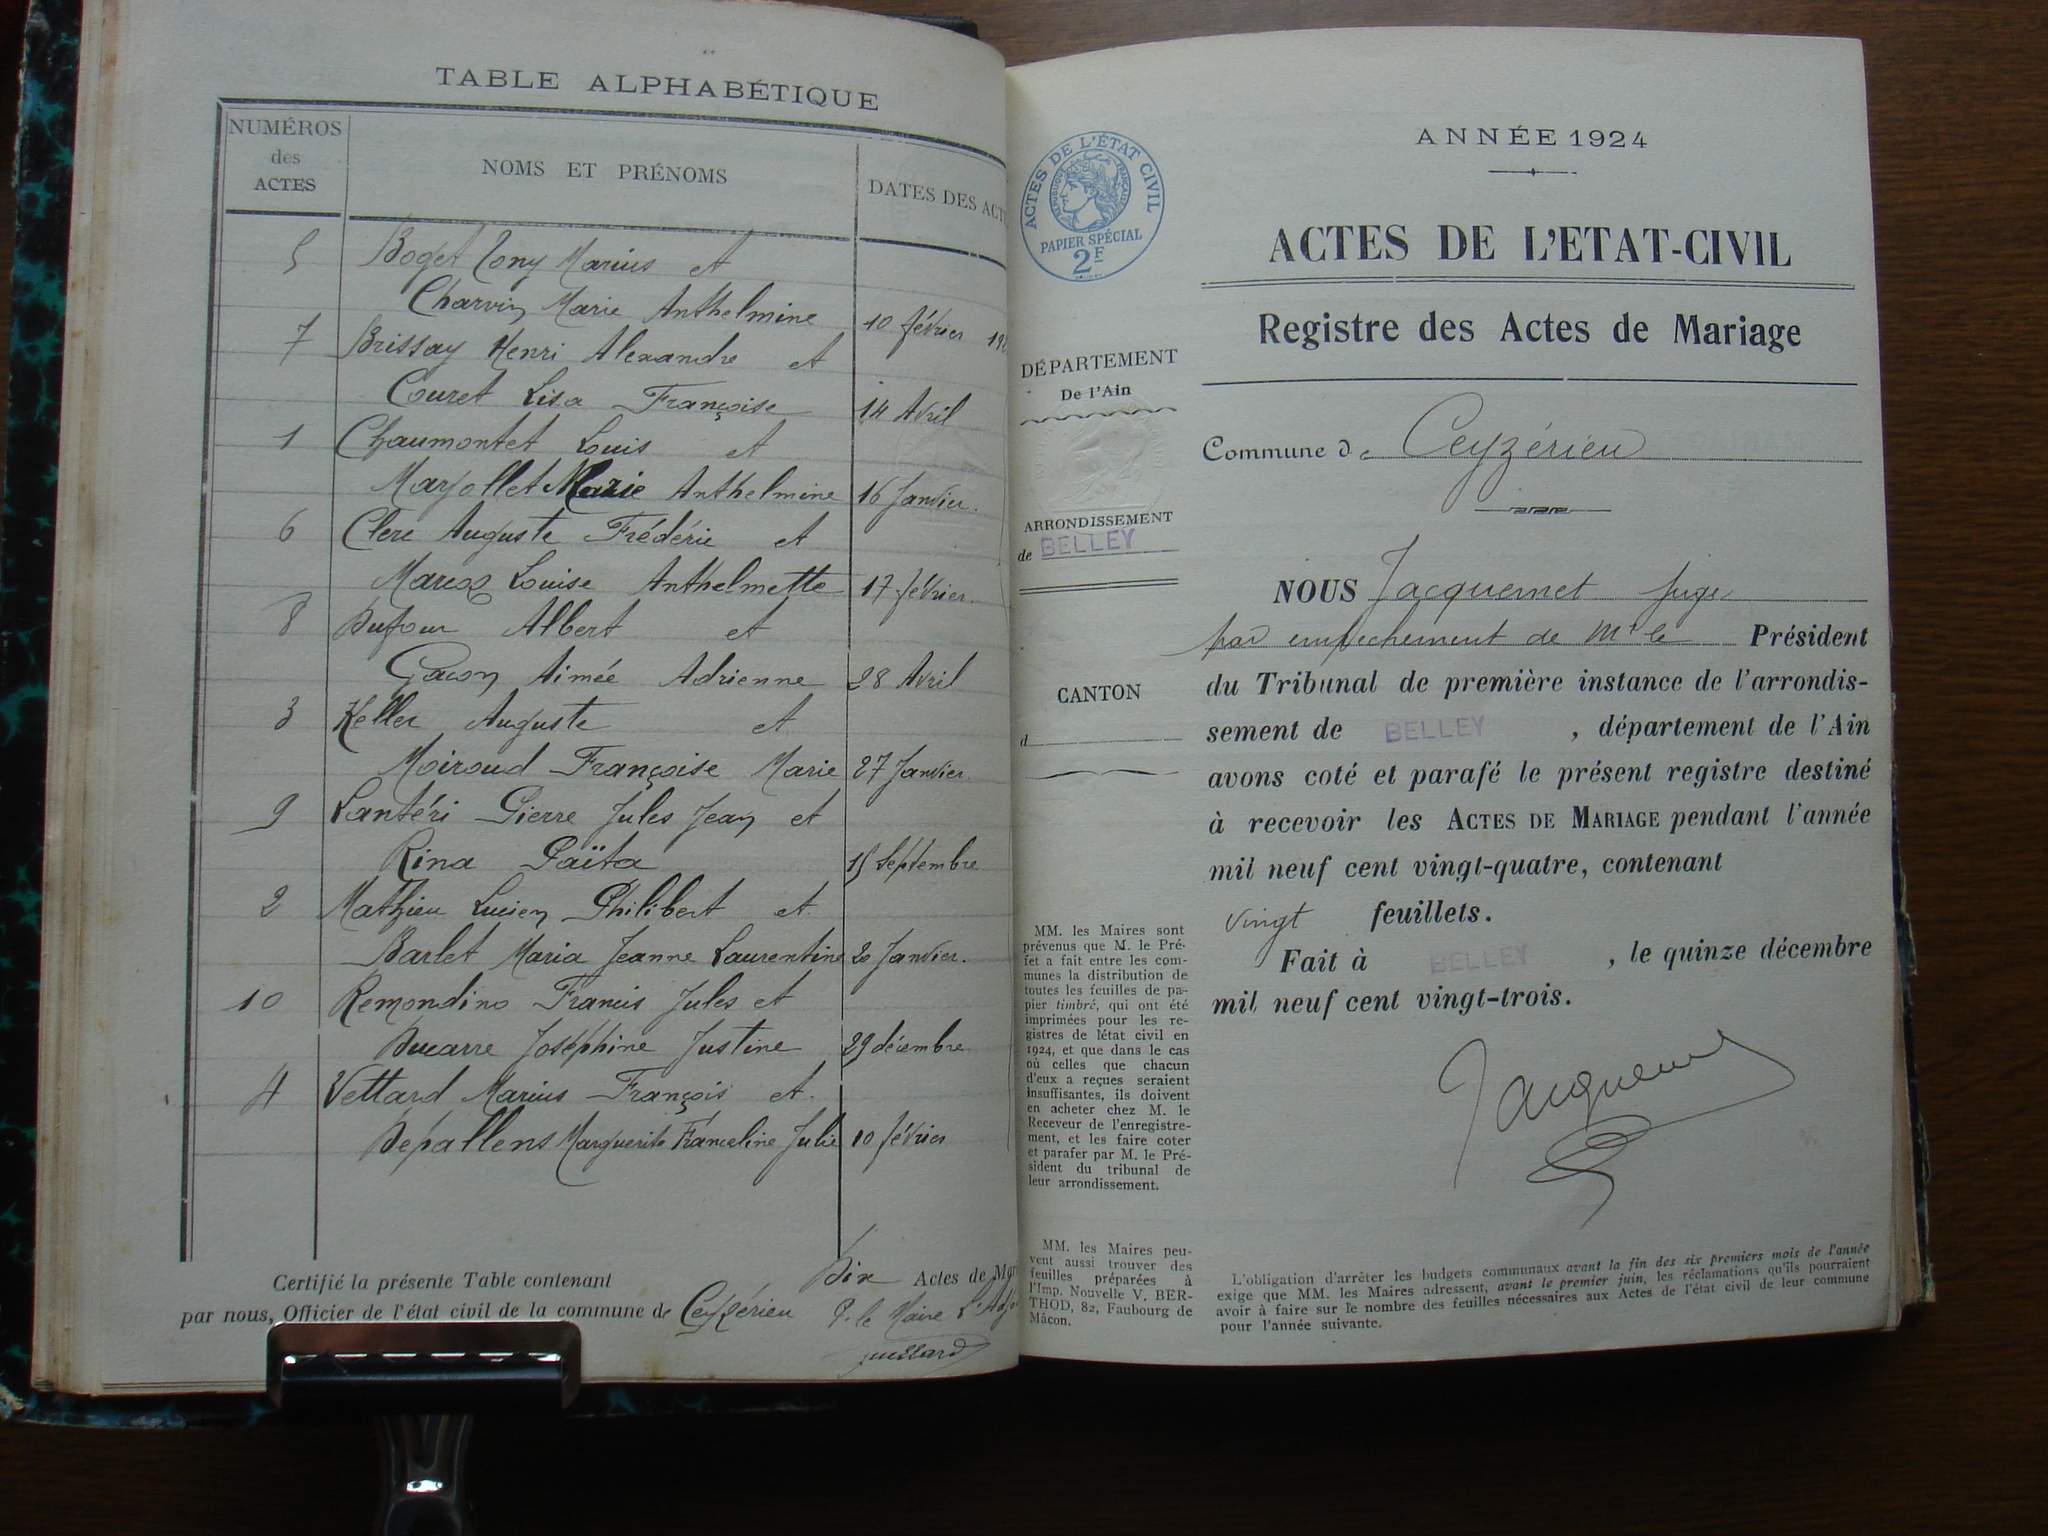 TABLE ALPHABÉTIQUE
NUMÉROS
des
ACTES
NOMS ET PRÉNOMS
DATES DES ACT
5 Boget Tony Marius et
Charvin Marie Anthelmine 10 février 19
7 Brissay Henri Alexandre et
Couret Lisa Françoise 14 Avril
1 Chaumontet Louis et
Marjollet Marie Anthelmine 16 Janvier.
6 Clerc Auguste Frédéric et
Marcoz Louise Anthelmette 17 février.
8 Dufour Albert et
Gacon Aimée Adrienne 28 Avril
3 Keller Auguste et
Moiroud Françoise Marie 27 Janvier.
9 Lantéri Pierre Jules Jean et
Rina Païta 15 Septembre
2 Mathieu Lucien Philibert et
Barlet Maria Jeanne Laurentine 20 Janvier.
10 Remondino Francis Jules et
Ducarre Joséphine Justine 29 décembre
4 Vettard Marius François et
Depallens Marguerite Franceline Julie 10 février
Certifié la présente Table contenant Dix Actes de Mar
par nous, Officier de l'état civil de la commune de Ceyzérieu P. le Maire L'Adj
ANNÉE 1924
ACTES DE L'ÉTAT CIVIL
RÉPUBLIQUE FRANÇAISE
PAPIER SPÉCIAL
2F
ACTES DE L'ETAT-CIVIL
Registre des Actes de Mariage
DÉPARTEMENT
De l'Ain
ARRONDISSEMENT
de BELLEY
CANTON
d
MM. les Maires sont
prévenus que M. le Pré-
fet a fait entre les com-
munes la distribution de
toutes les feuilles de pa-
pier timbré, qui ont été
imprimées pour les re-
gistres de létat civil en
1924, et que dans le cas
où celles que chacun
d'eux a reçues seraient
insuffisantes, ils doivent
en acheter chez M. le
Receveur de l'enregistre-
ment, et les faire coter
et parafer par M. le Pré-
sident du tribunal de
leur arrondissement.
MM. les Maires peu-
vent aussi trouver des
feuilles préparées à
l'Imp. Nouvelle V. BER-
THOD, 82, Faubourg de
Mâcon.
Commune de Ceyzérieu
NOUS Jacquemet juge
par empêchement de Mr le Président
du Tribunal de première instance de l'arrondis-
sement de BELLEY, département de l'Ain
avons coté et parafé le présent registre destiné
à recevoir les ACTES DE MARIAGE pendant l'année
mil neuf cent vingt-quatre, contenant
vingt feuillets.
Fait à BELLEY, le quinze décembre
mil neuf cent vingt-trois.
Jacquemet
L'obligation d'arrêter les budgets communaux avant la fin des six premiers mois de l'année
exige que MM. les Maires adressent, avant le premier juin, les réclamations qu'ils pourraient
avoir à faire sur le nombre des feuilles nécessaires aux Actes de l'état civil de leur commune
pour l'année suivante.